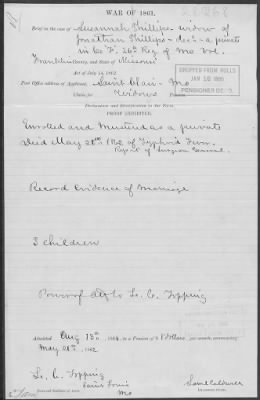 WAR OF 1861.
Brief in the case of Susannah Phillips widow of
Jonathan Phillips - decd - a private
in Co F, 26th Reg of Mo Vol.
Franklin County, and State of Missouri
Act of July 14, 1862.
Post Office address of Applicant, Saint Clair Mo
Claim for Widows
DROPPED FROM ROLLS
PENSIONER DEAD
Declaration and Identification in due Form.
PROOF EXHIBITED.
Enrolled and Mustered as a private
Died May 28th 1862 of Typhoid Fever.
Report of Surgeon General.
Record Evidence of Marriage
3 children
Power of Atty to L. C. Topping
Admitted Aug 13th, 1864, to a Pension of 8 Dollars per month, commencing
May 28th, 1862
L. C. Topping
Saint Louis
Mo